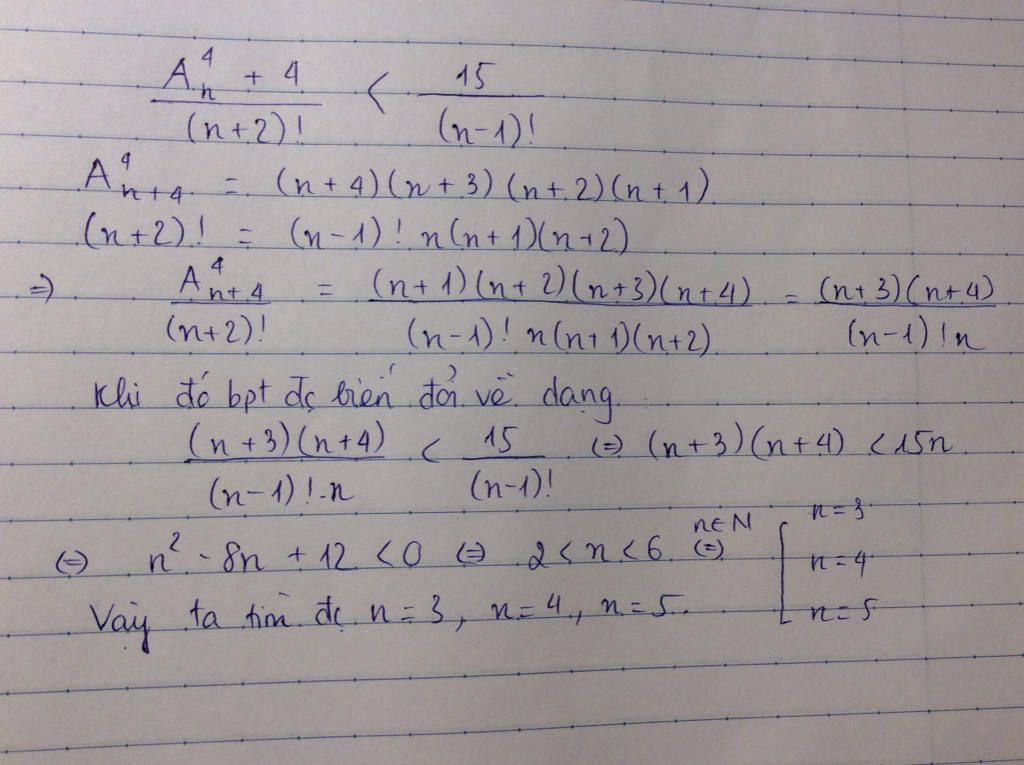 A⁴ₙ + 4 / (n+2)! < 15 / (n-1)!
A⁴ₙ₊₄ = (n+4)(n+3)(n+2)(n+1)
(n+2)! = (n-1)! n(n+1)(n+2)
=) A⁴ₙ₊₄ / (n+2)! = (n+1)(n+2)(n+3)(n+4) / (n-1)! n(n+1)(n+2) = (n+3)(n+4) / (n-1)! n
Khi đó bpt đc biến đổi về dạng
(n+3)(n+4) / (n-1)!.n < 15 / (n-1)! (=) (n+3)(n+4) < 15n
(=) n² - 8n + 12 < 0 (=) 2 < n < 6 n∈N (=) [ n=3
n=4
n=5
Vậy ta tìm đc n=3, n=4, n=5.